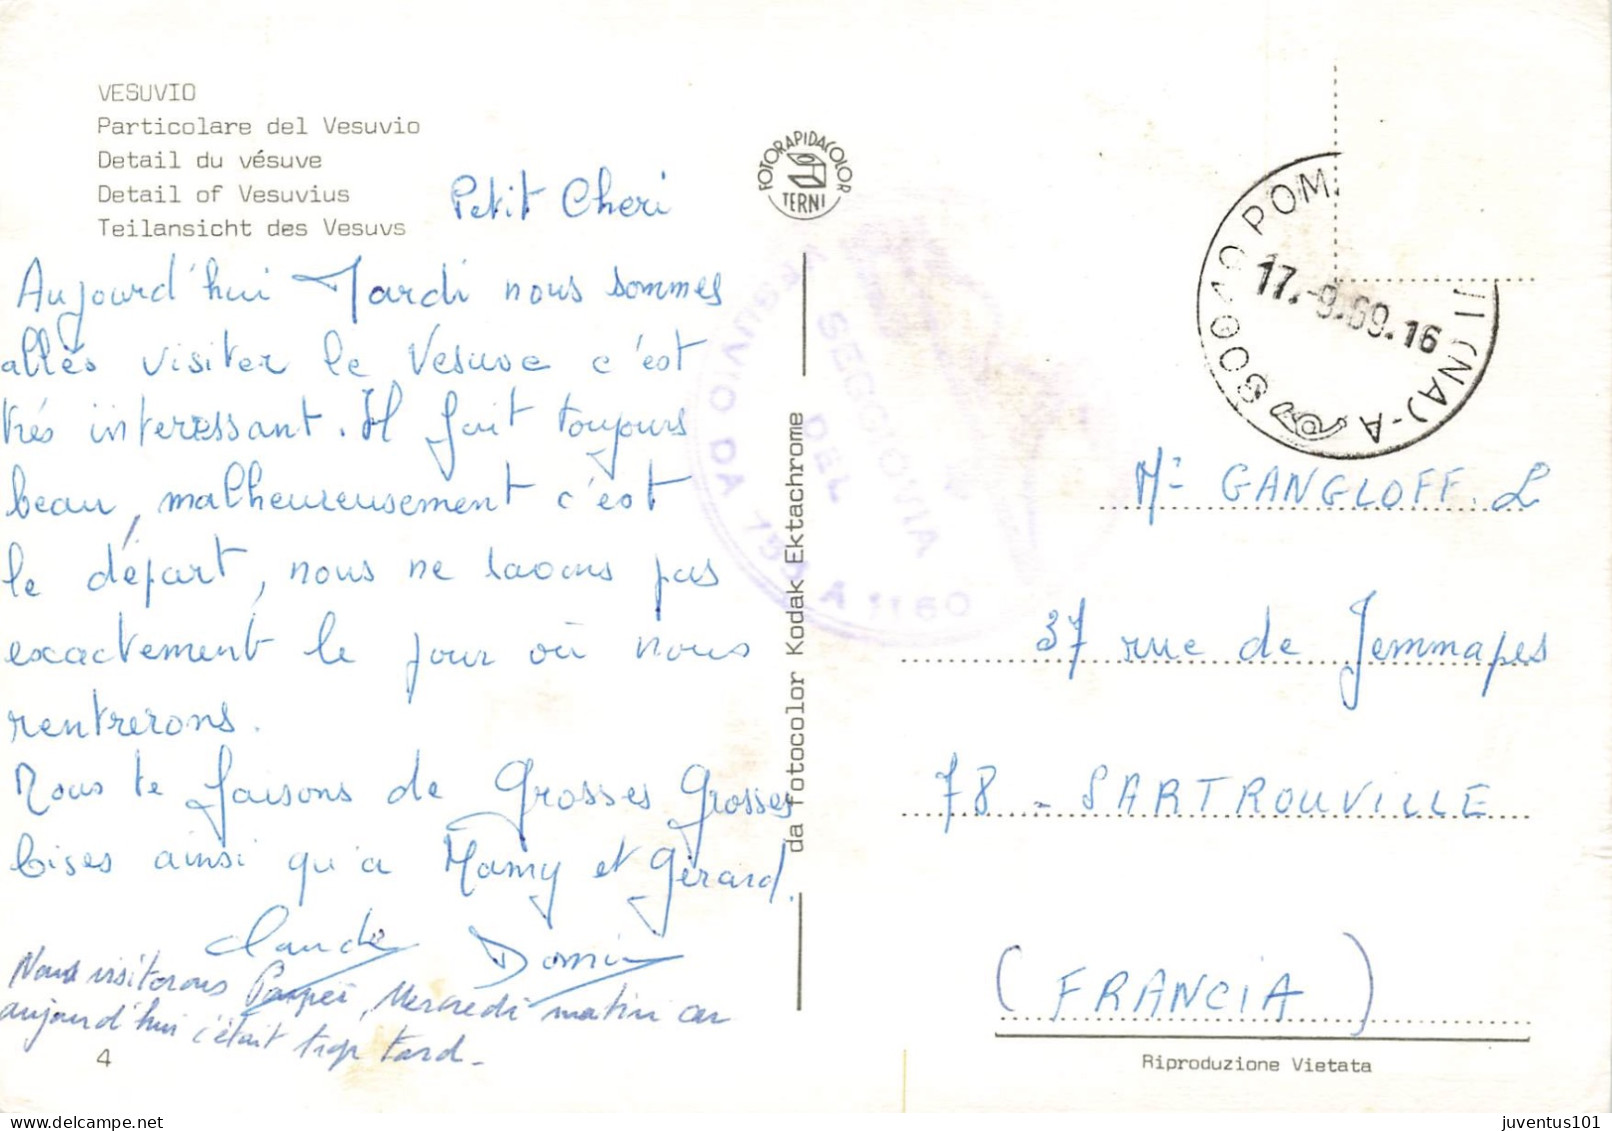 VESUVIO
Particolare del Vesuvio
Detail du vésuve
Detail of Vesuvius
Teilansicht des Vesuvs
Petit Cheri
Aujourd'hui Mardi nous sommes
allés visiter le Vesuve c'est
trés interessant. Il fait toujours
beau, malheureusement c'est
le départ, nous ne savons pas
exactement le jour où nous
rentrerons.
Nous te faisons de Grosses Grosses
bises ainsi qu'a Mamy et Gérard.
Claude Domi
Nous visiterons Pompeï, Mercredi matin car
aujourd'hui c'était trop tard-
4
FOTORAPIDACOLOR
TERNI
da fotocolor Kodak Ektachrome
SEGGIOVIA
DEL
VESUVIO DA 753 A 1160
80040 POM II (NA)-A
17.-9.69.16
Mr GANGLOFF. L
37 rue de Jemmapes
78 - SARTROUVILLE
(FRANCIA)
Riproduzione Vietata
juventus101